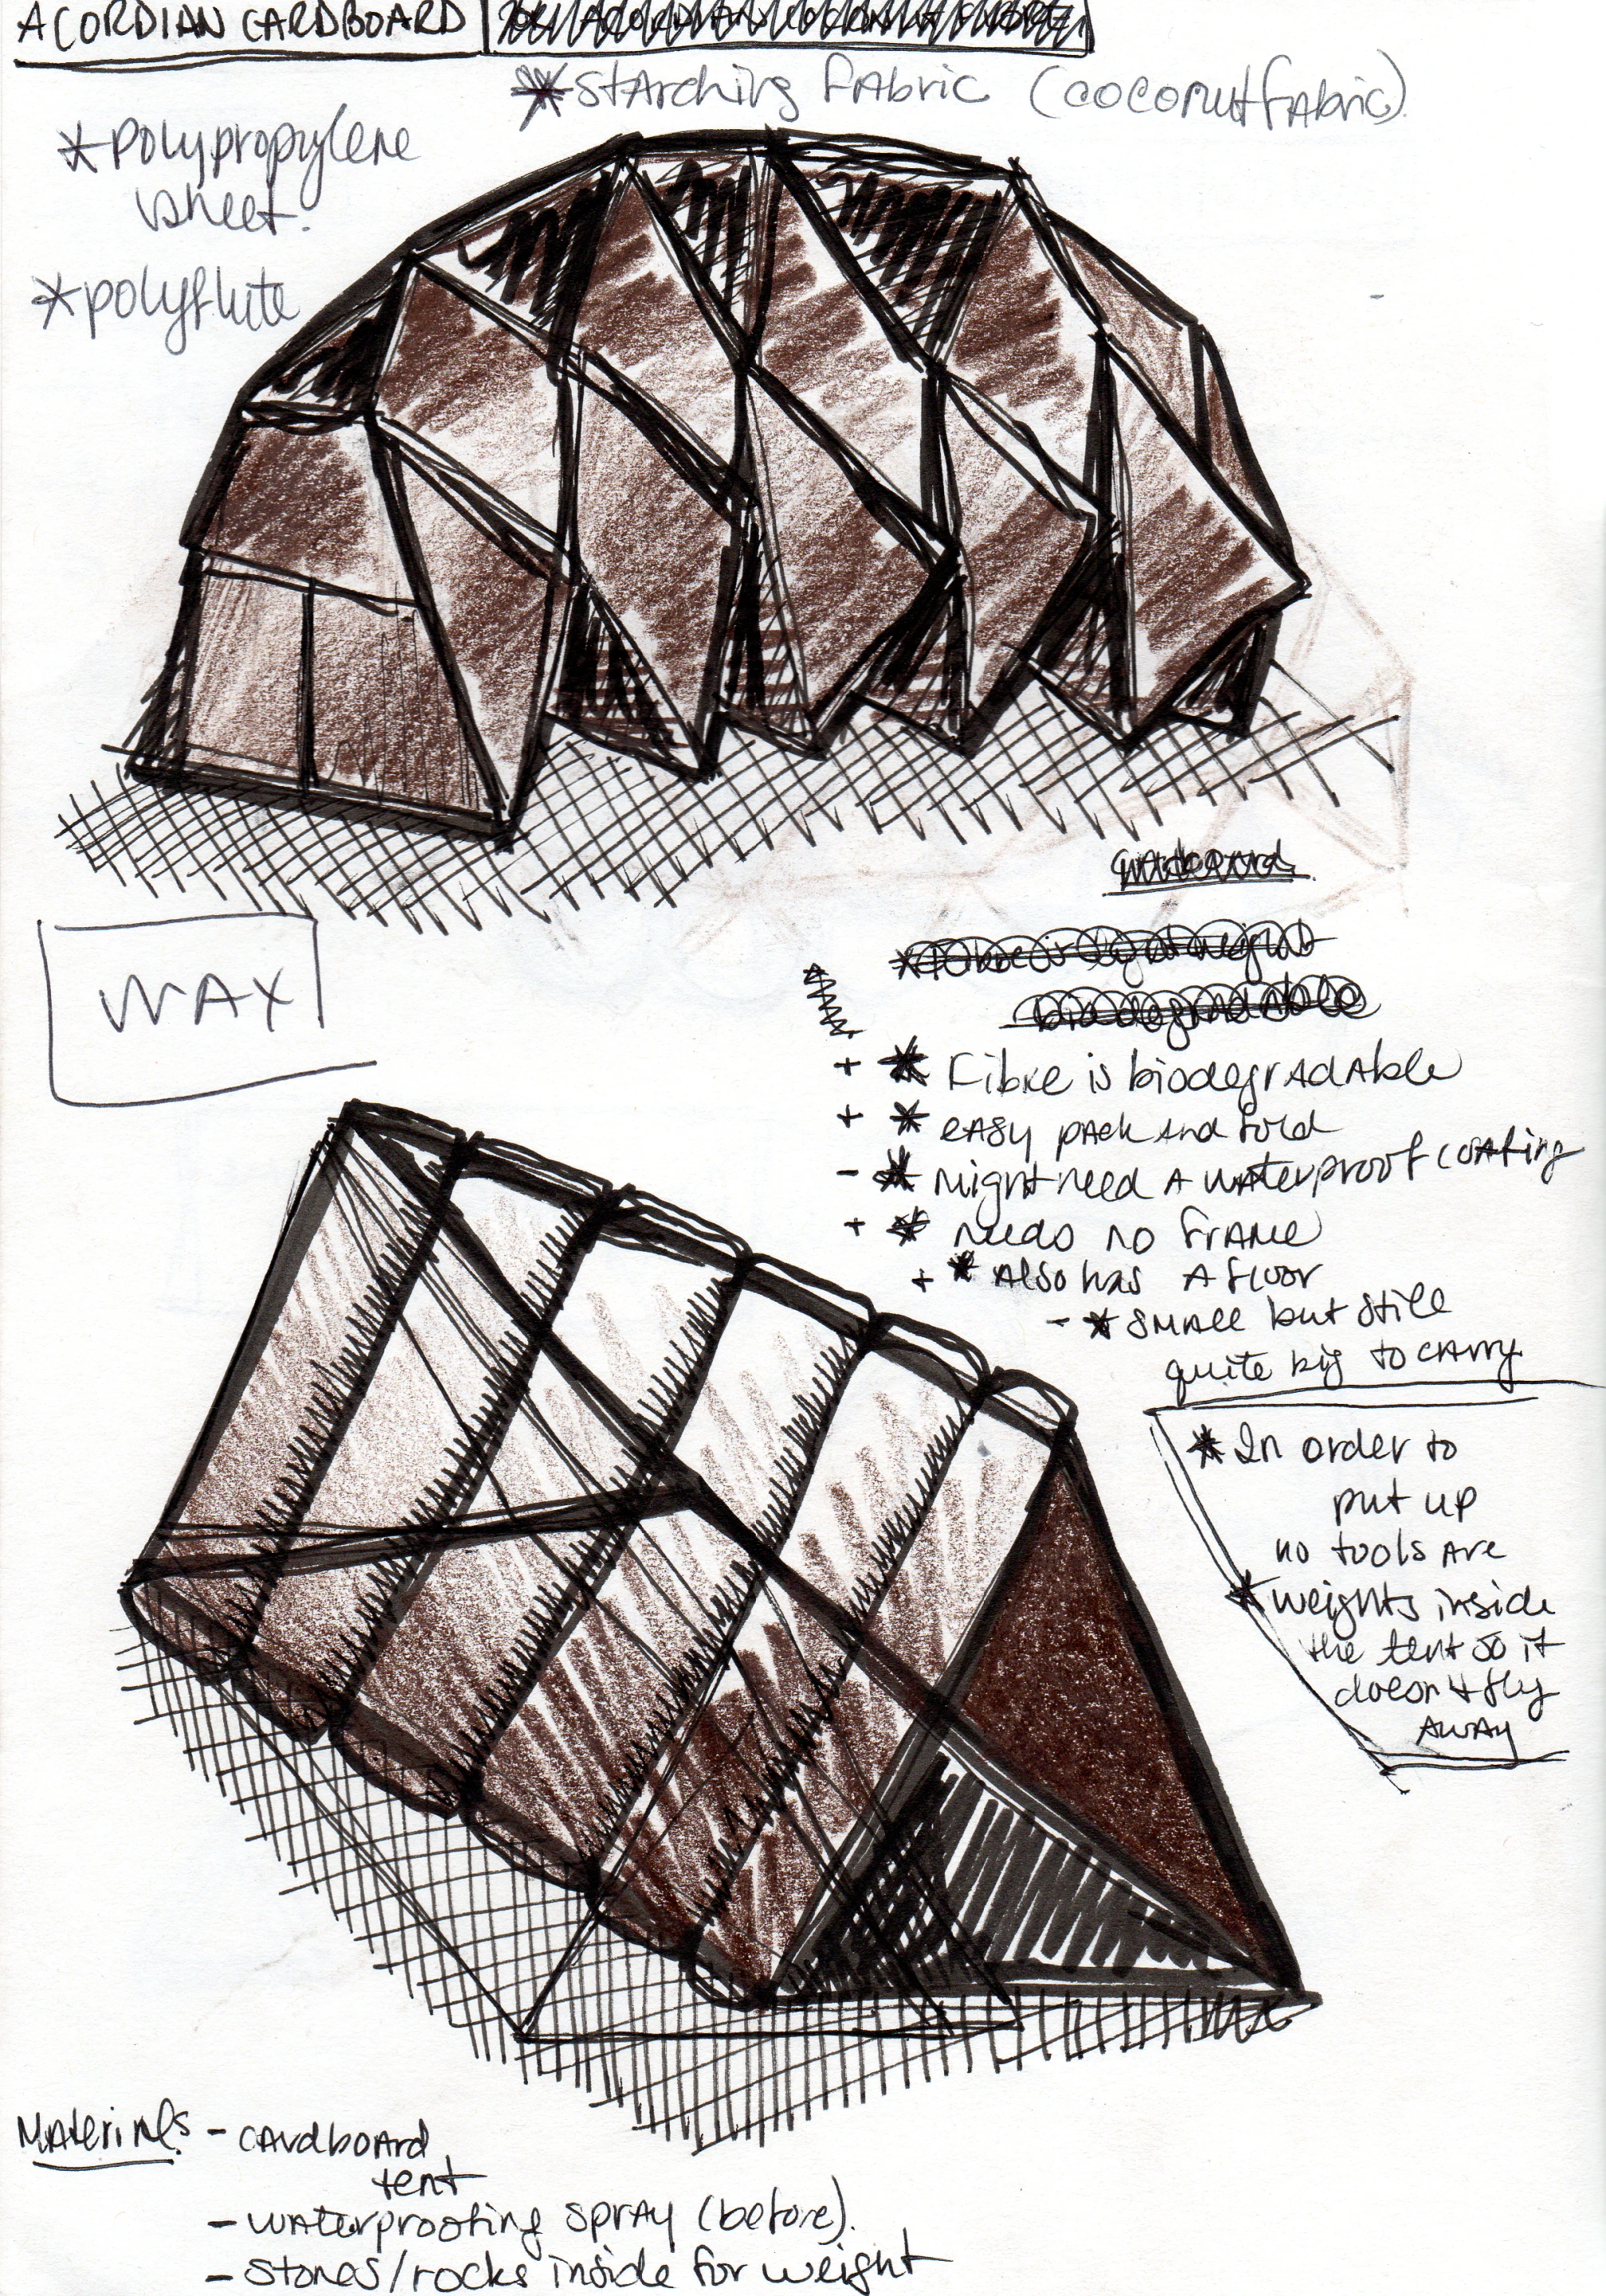 ACORDIAN CARDBOARD
*Starching fabric (coconut fabric)
*polypropylene
sheet.
*polyflute
WAX
*Fibre is lightweight
biodegradable
+ * Fibre is biodegradable
+ * easy pack and fold
- * might need a waterproof coating
+ * needs no frame
+ * Also has a floor
- * small but still
quite big to carry
* In order to
put up
no tools are
* weights inside
the tent so it
doesn't fly
away
Materials - cardboard
tent
- waterproofing spray (before).
- stones/rocks inside for weight